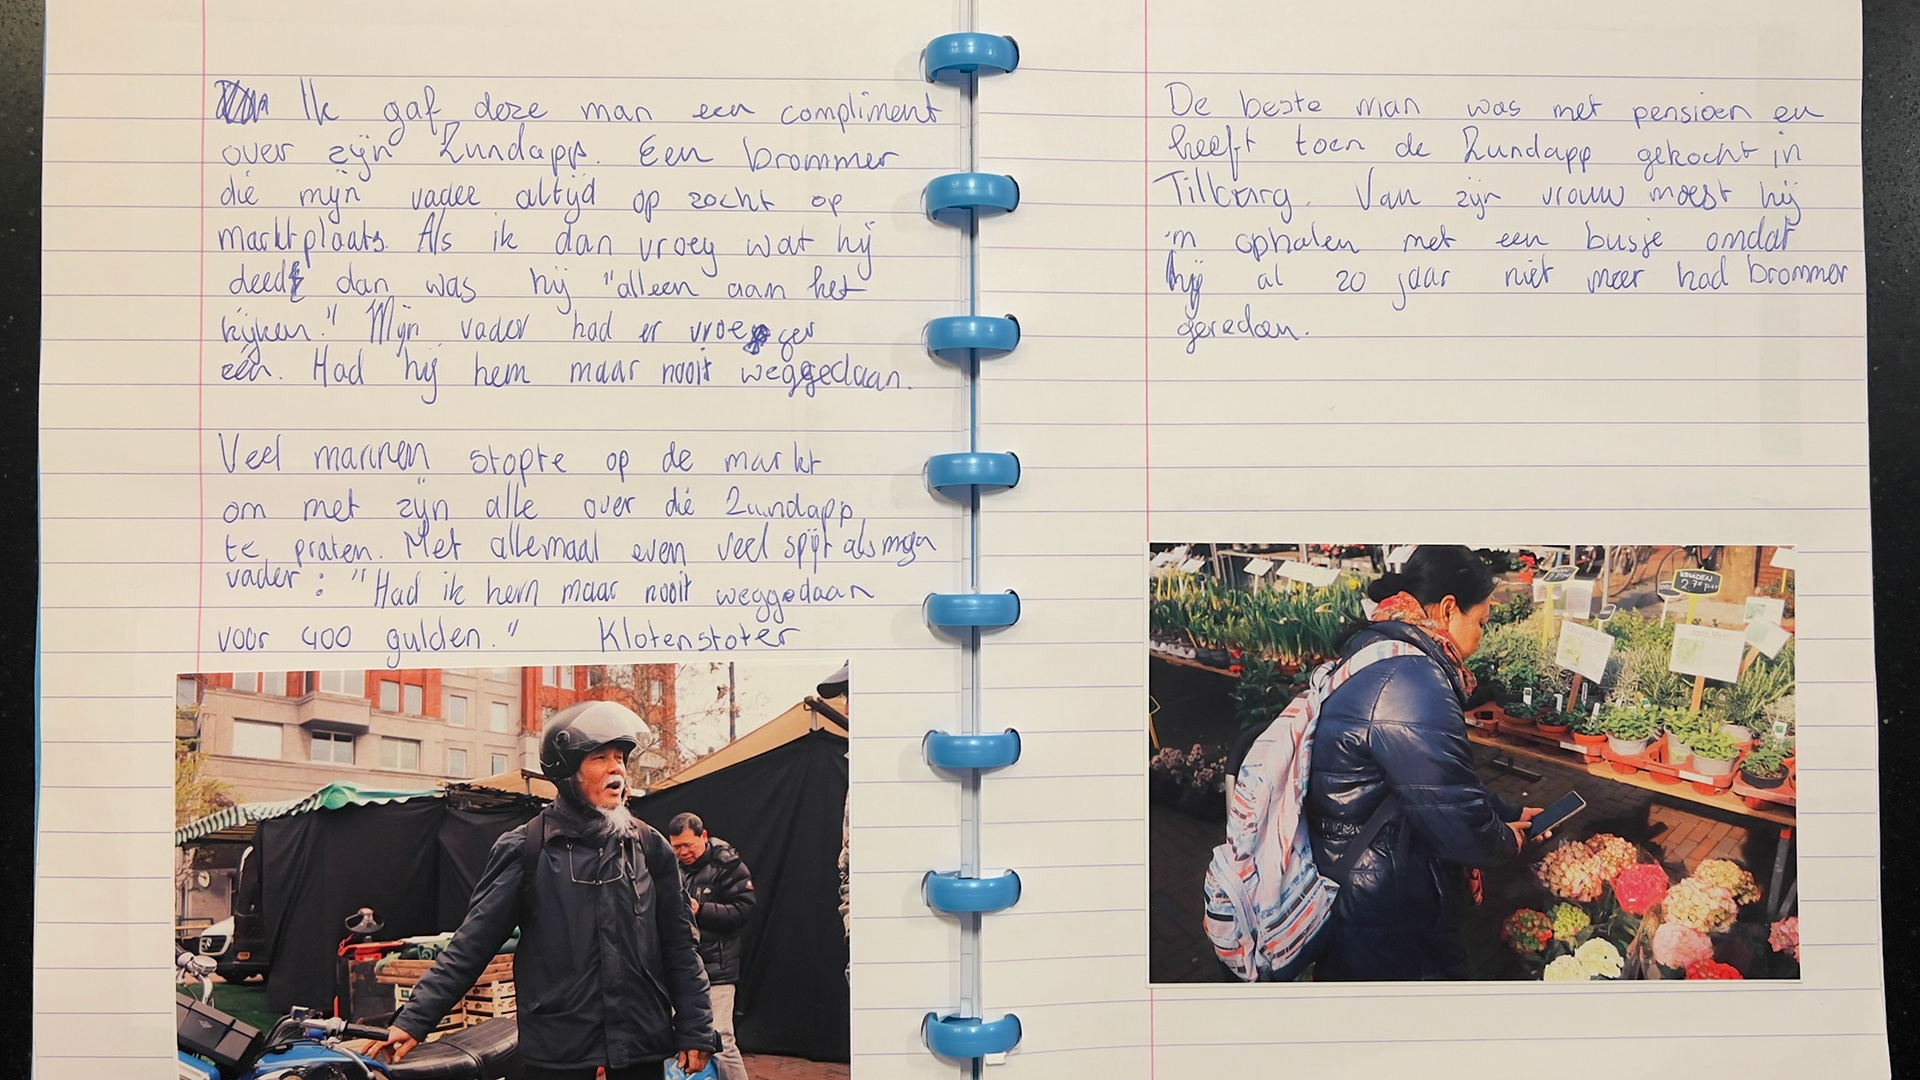 Ik gaf deze man een compliment
over zijn Zundapp. Een brommer
die mijn vader altijd op zocht op
marktplaats. Als ik dan vroeg wat hij
deed dan was hij "alleen aan het
kijken." Mijn vader had er vroeger
één. Had hij hem maar nooit weggedaan.
Veel mannen stopte op de markt
om met zijn alle over die Zundapp
te praten. Met allemaal even veel spijt als mijn
vader: "Had ik hem maar nooit weggedaan
voor 400 gulden." Klotenstoter
De beste man was met pensioen en
heeft toen de Zundapp gekocht in
Tilburg. Van zijn vrouw moest hij
'm ophalen met een busje omdat
hij al 20 jaar niet meer had brommer
gereden.
KRUIDEN